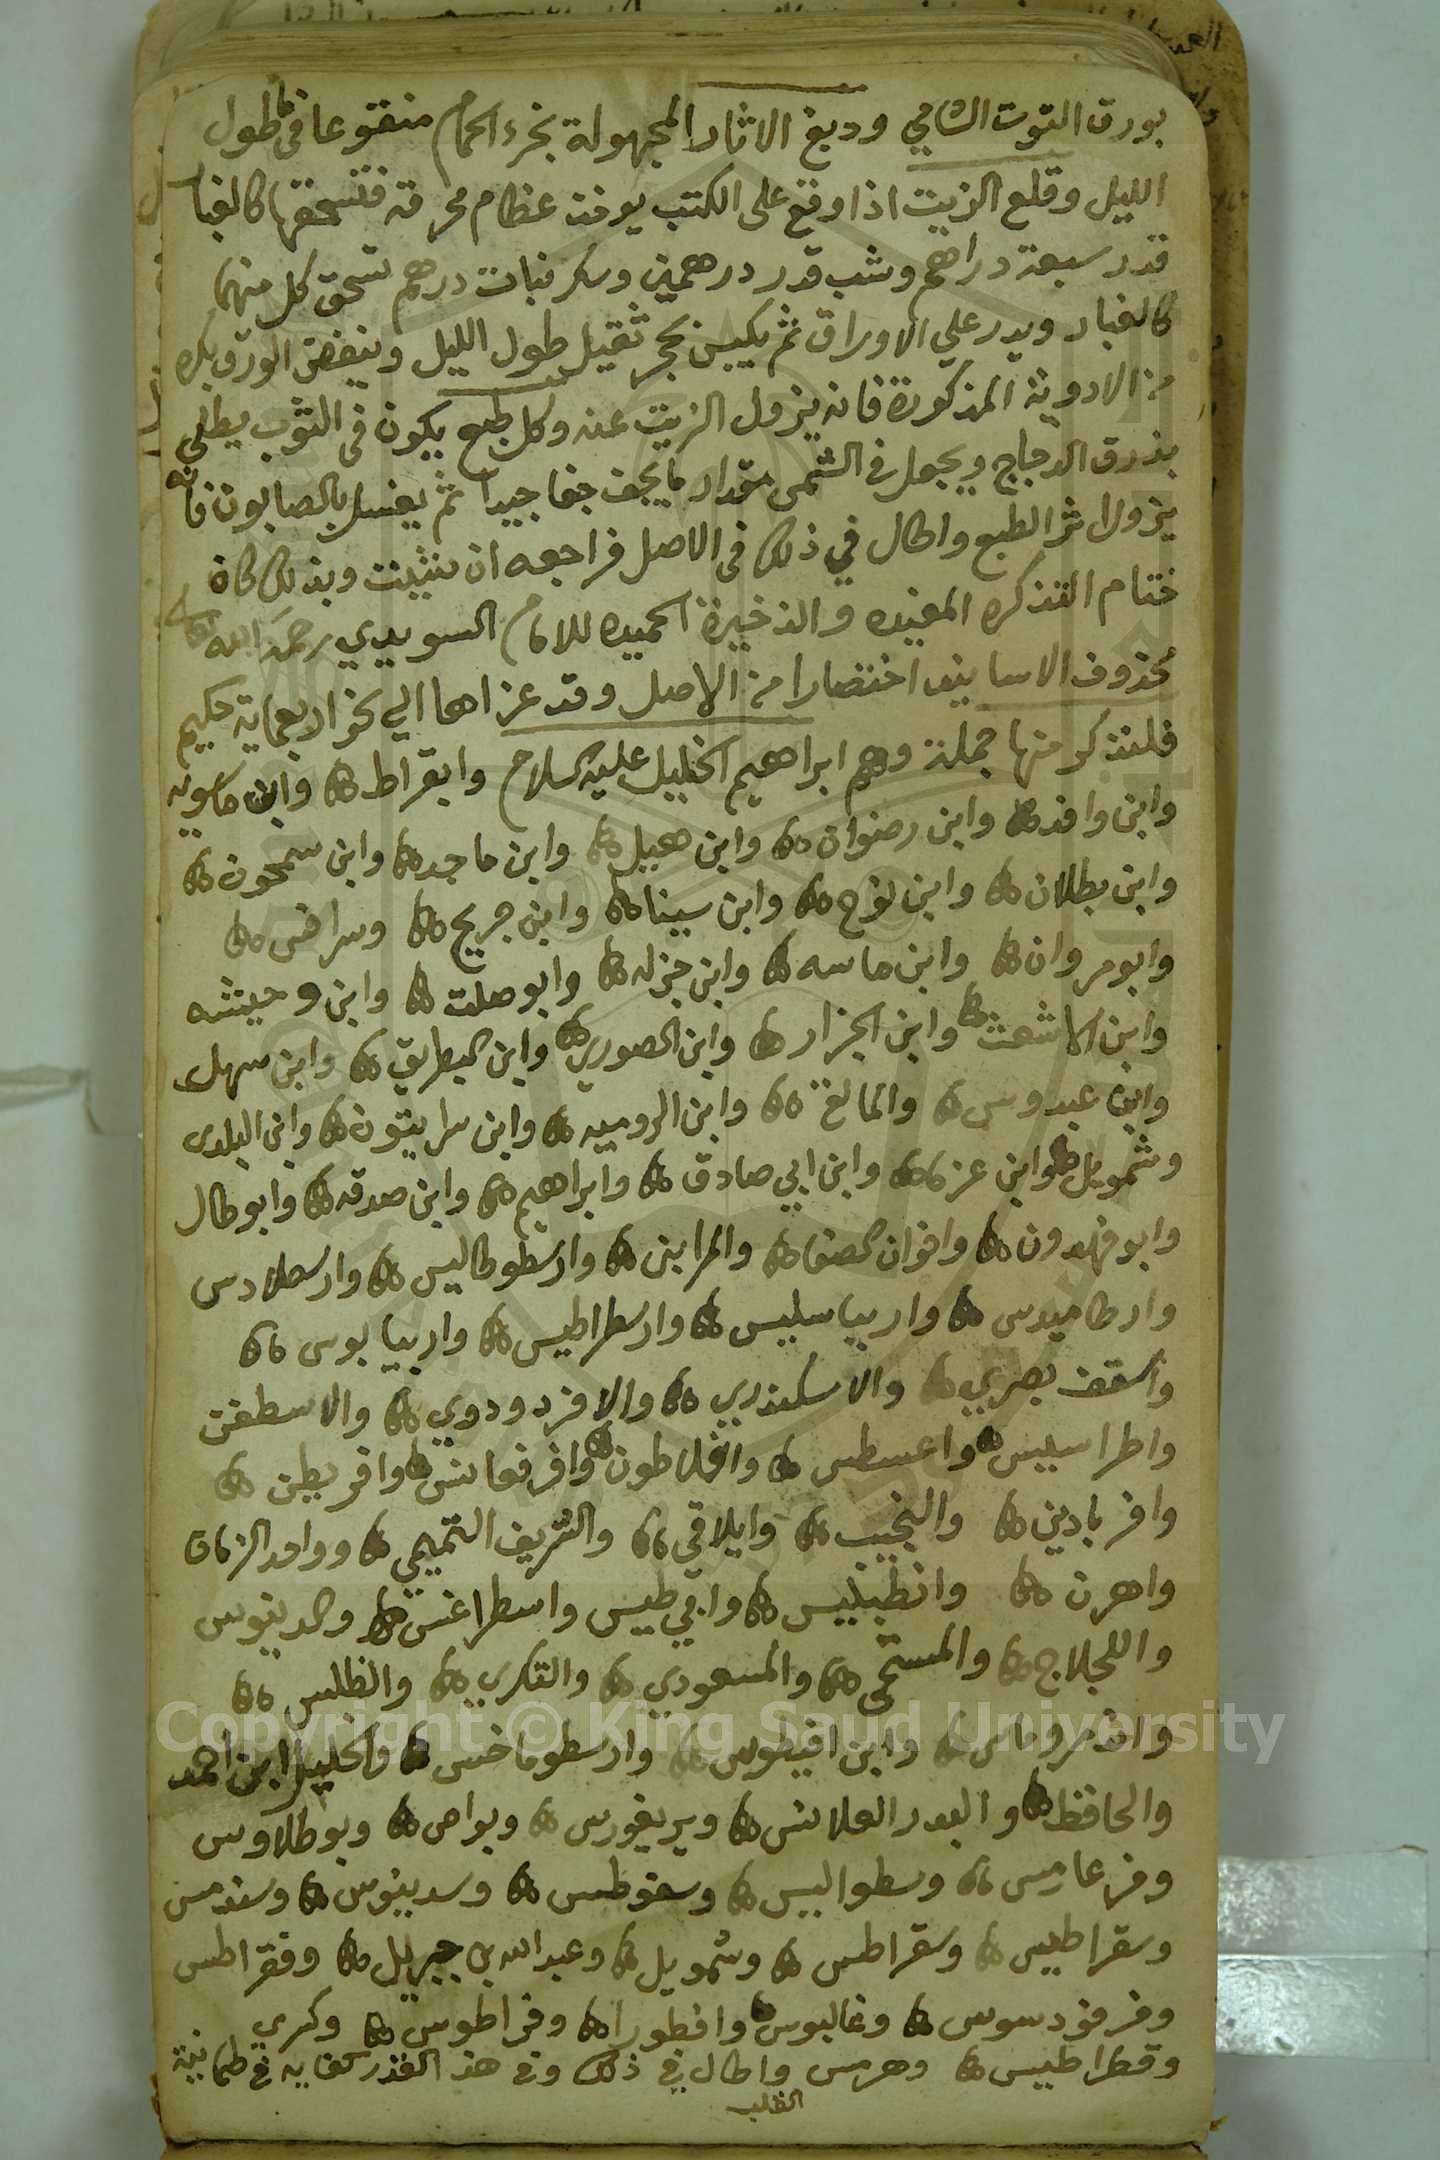 بورق التوت الشامي ودبغ الاثار المجهولة بخرء الحمام منقوعا في ما طول
الليل وقلع الزيت اذا وقع على الكتب يوخذ عظام محرقه فتسحقها كالغبا
قدر سبعة دراهم وشب قدر درهمين وسكر نبات درهم تسحق كل منهما
كالغبار ويدر علي الاوراق ثم يكبس بحجر ثقيل طول الليل وينفض الورق بكره
من الادوية المذكورة فانه يزول الزيت عنه وكل طبع يكون في الثوب يطلى
بذرق الدجاج ويجعل في الشمس مقدار ما يجف جفا جيدا ثم يغسل بالصابون فانه
يزول اثر الطبع واطال في ذلك في الاصل فراجعه ان شئت وبذلك كان
ختام التذكره المفيده والذخيرة الحميده للامام السويدي رحمه الله تعالى
محذوف الاسانيد اختصارا من الاصل وقد عزاها الي نحو اربعماية حكيم
فلنذكر منها جملة وهم ابراهيم الخليل عليه السلام وابقراط وابن ماسويه
وابن وافد وابن رضوان وابن هبل وابن ماجد وابن سمحون
وابن بطلان وابن نوح وابن سينا وابن جريح وسرافس
وابو مروان وابن ماسه وابن جزله وابو صلت وابن وحيشه
وابن الاشعث وابن الجزار وابن الصوري وابن البطريق وابن سهل
وابن عبدوس والمالغ وابن الروميه وابن سرابيون وابن البلدى
وشمويل وابن عزه وابن ابي صادق وابراهيم وابن صدقه وابو طال
وابو فهدون واخوان الصفا والمرابنى وارسطوطاليس وارسلادس
وارطاميدس واريباسليس وارسطراطيس واريبابوس
واسقف بصري والاسكندري والافردودوي والاسطفن
واطراسيس واعسطس وافلاطون وافرغانس وافريطن
وافربادين والنجيب وايلاقي والشريف التميمي وواحد الزمان
واهرن وانطبليس وافي طيس واسطراغنس والدينوس
واللجلاج والمستحى والمسعودي والفكري والظلس
واندروماس وابن افيطوس وارسطوماخس والخليل ابن احمد
والحافظ والبدر العلانس وبريغورس وبواص وبوطلاوس
وفرعارمس وسطواليس وسفوطس وسدينوس وسندمس
وسقراطيس وسقراطس وشمويل وعبد الله بن جبريل وفقراطس
وفرفودسوس وغاليوس وافطورا وفراطوس وكسري
وقطراطيس وهرمس واطال في ذلك وفي هذا القدر كفايه في طمانية
القلب
Copyright © King Saud University